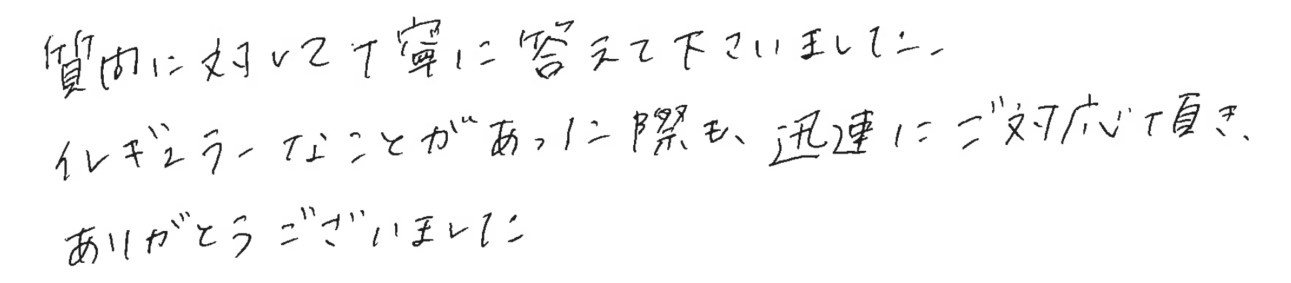 質問に対して丁寧に答えて下さいました。
イレギュラーなことがあった際も、迅速にご対応頂き、
ありがとうございました